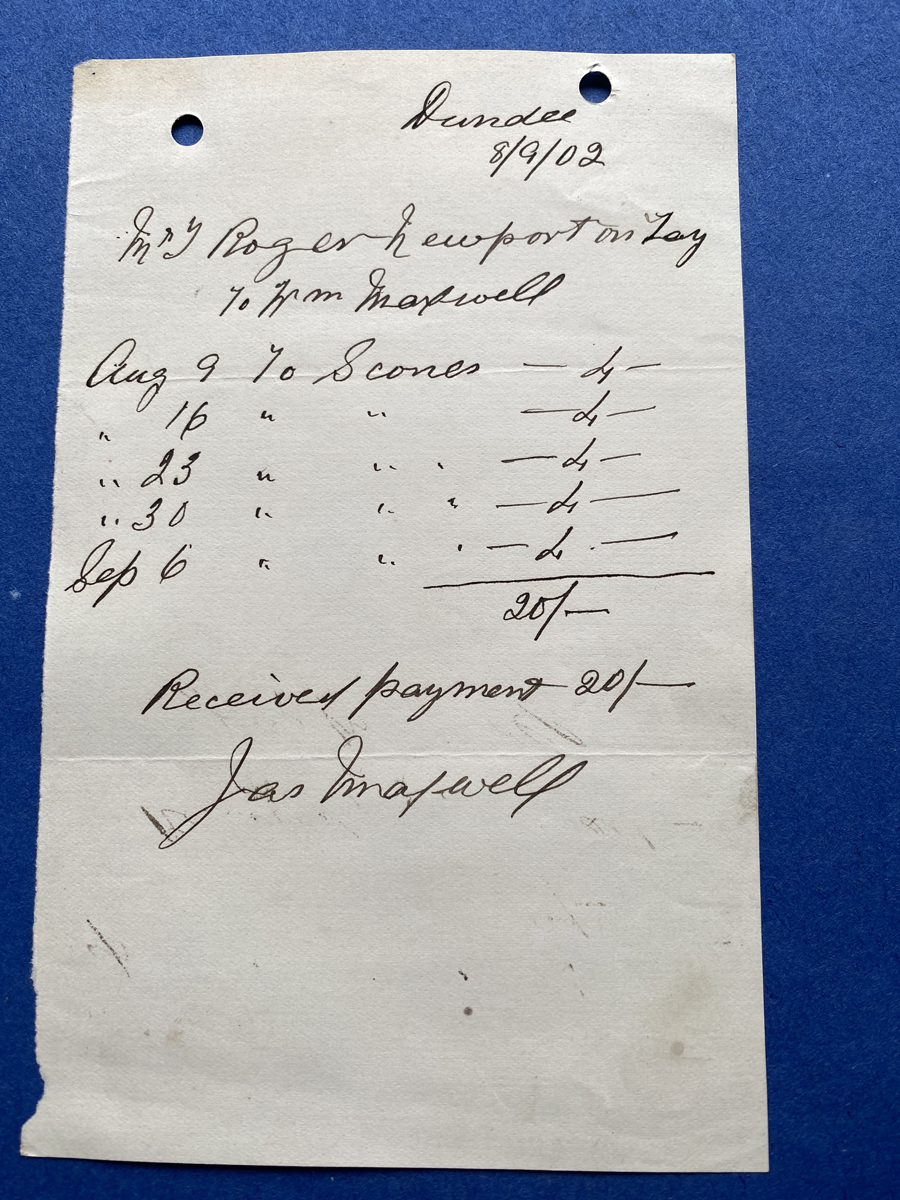 Dundee
8/9/02
Mr J Roger Newport on Tay
To Wm Maxwell
Aug 9 To Scones — 4 —
" 16 " " — 4 —
" 23 " " " — 4 —
" 30 " " " — 4 —
Sep 6 " " " — 4 —
20/—
Received payment 20/—
Jas Maxwell